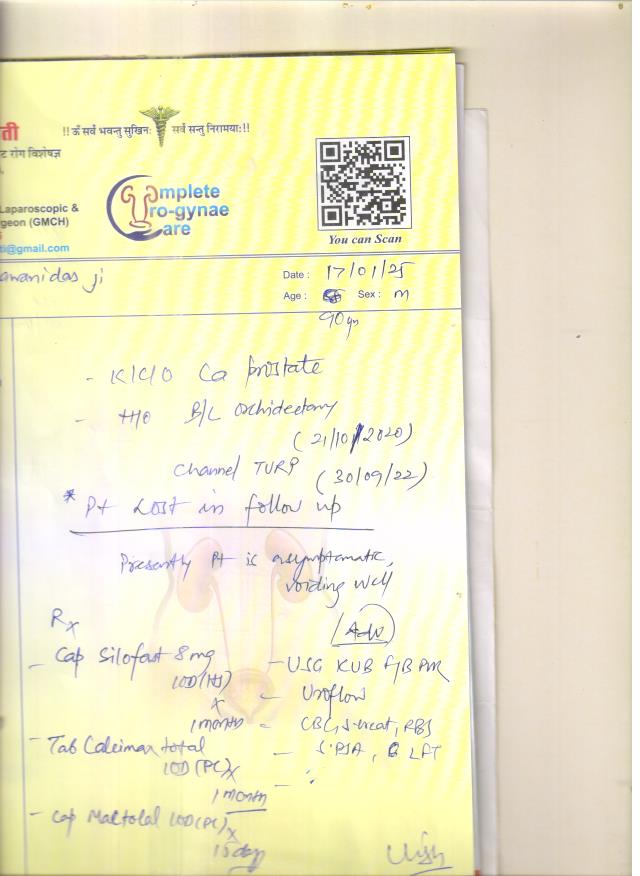 ती
!!ॐ सर्वे भवन्तु सुखिनः सर्वे सन्तु निरामयाः!!
ट रोग विशेषज्ञ
Laparoscopic &
geon (GMCH)
ti@gmail.com
omplete
ro-gynae
are
You can Scan
awanidas ji
Date : 17/01/25
Age : Sex : m
90 yr
- K/C/O Ca prostate
- H/O B/L orchidectomy
(21/10/2020)
Channel TURP (30/09/22)
* Pt Lost in follow up
Presently Pt is asymptomatic,
voiding well
Rx
Adv
- Cap Silofast 8 mg
1OD (HS)
x
1 month
- Tab Calcimax total
1OD (PC) x
1 month
- Cap Maltolal 1OD (PC) x
15 day
- USG KUB PVR
- Uroflow
- CBC, S. creat, RBS
- S. PSA, LFT